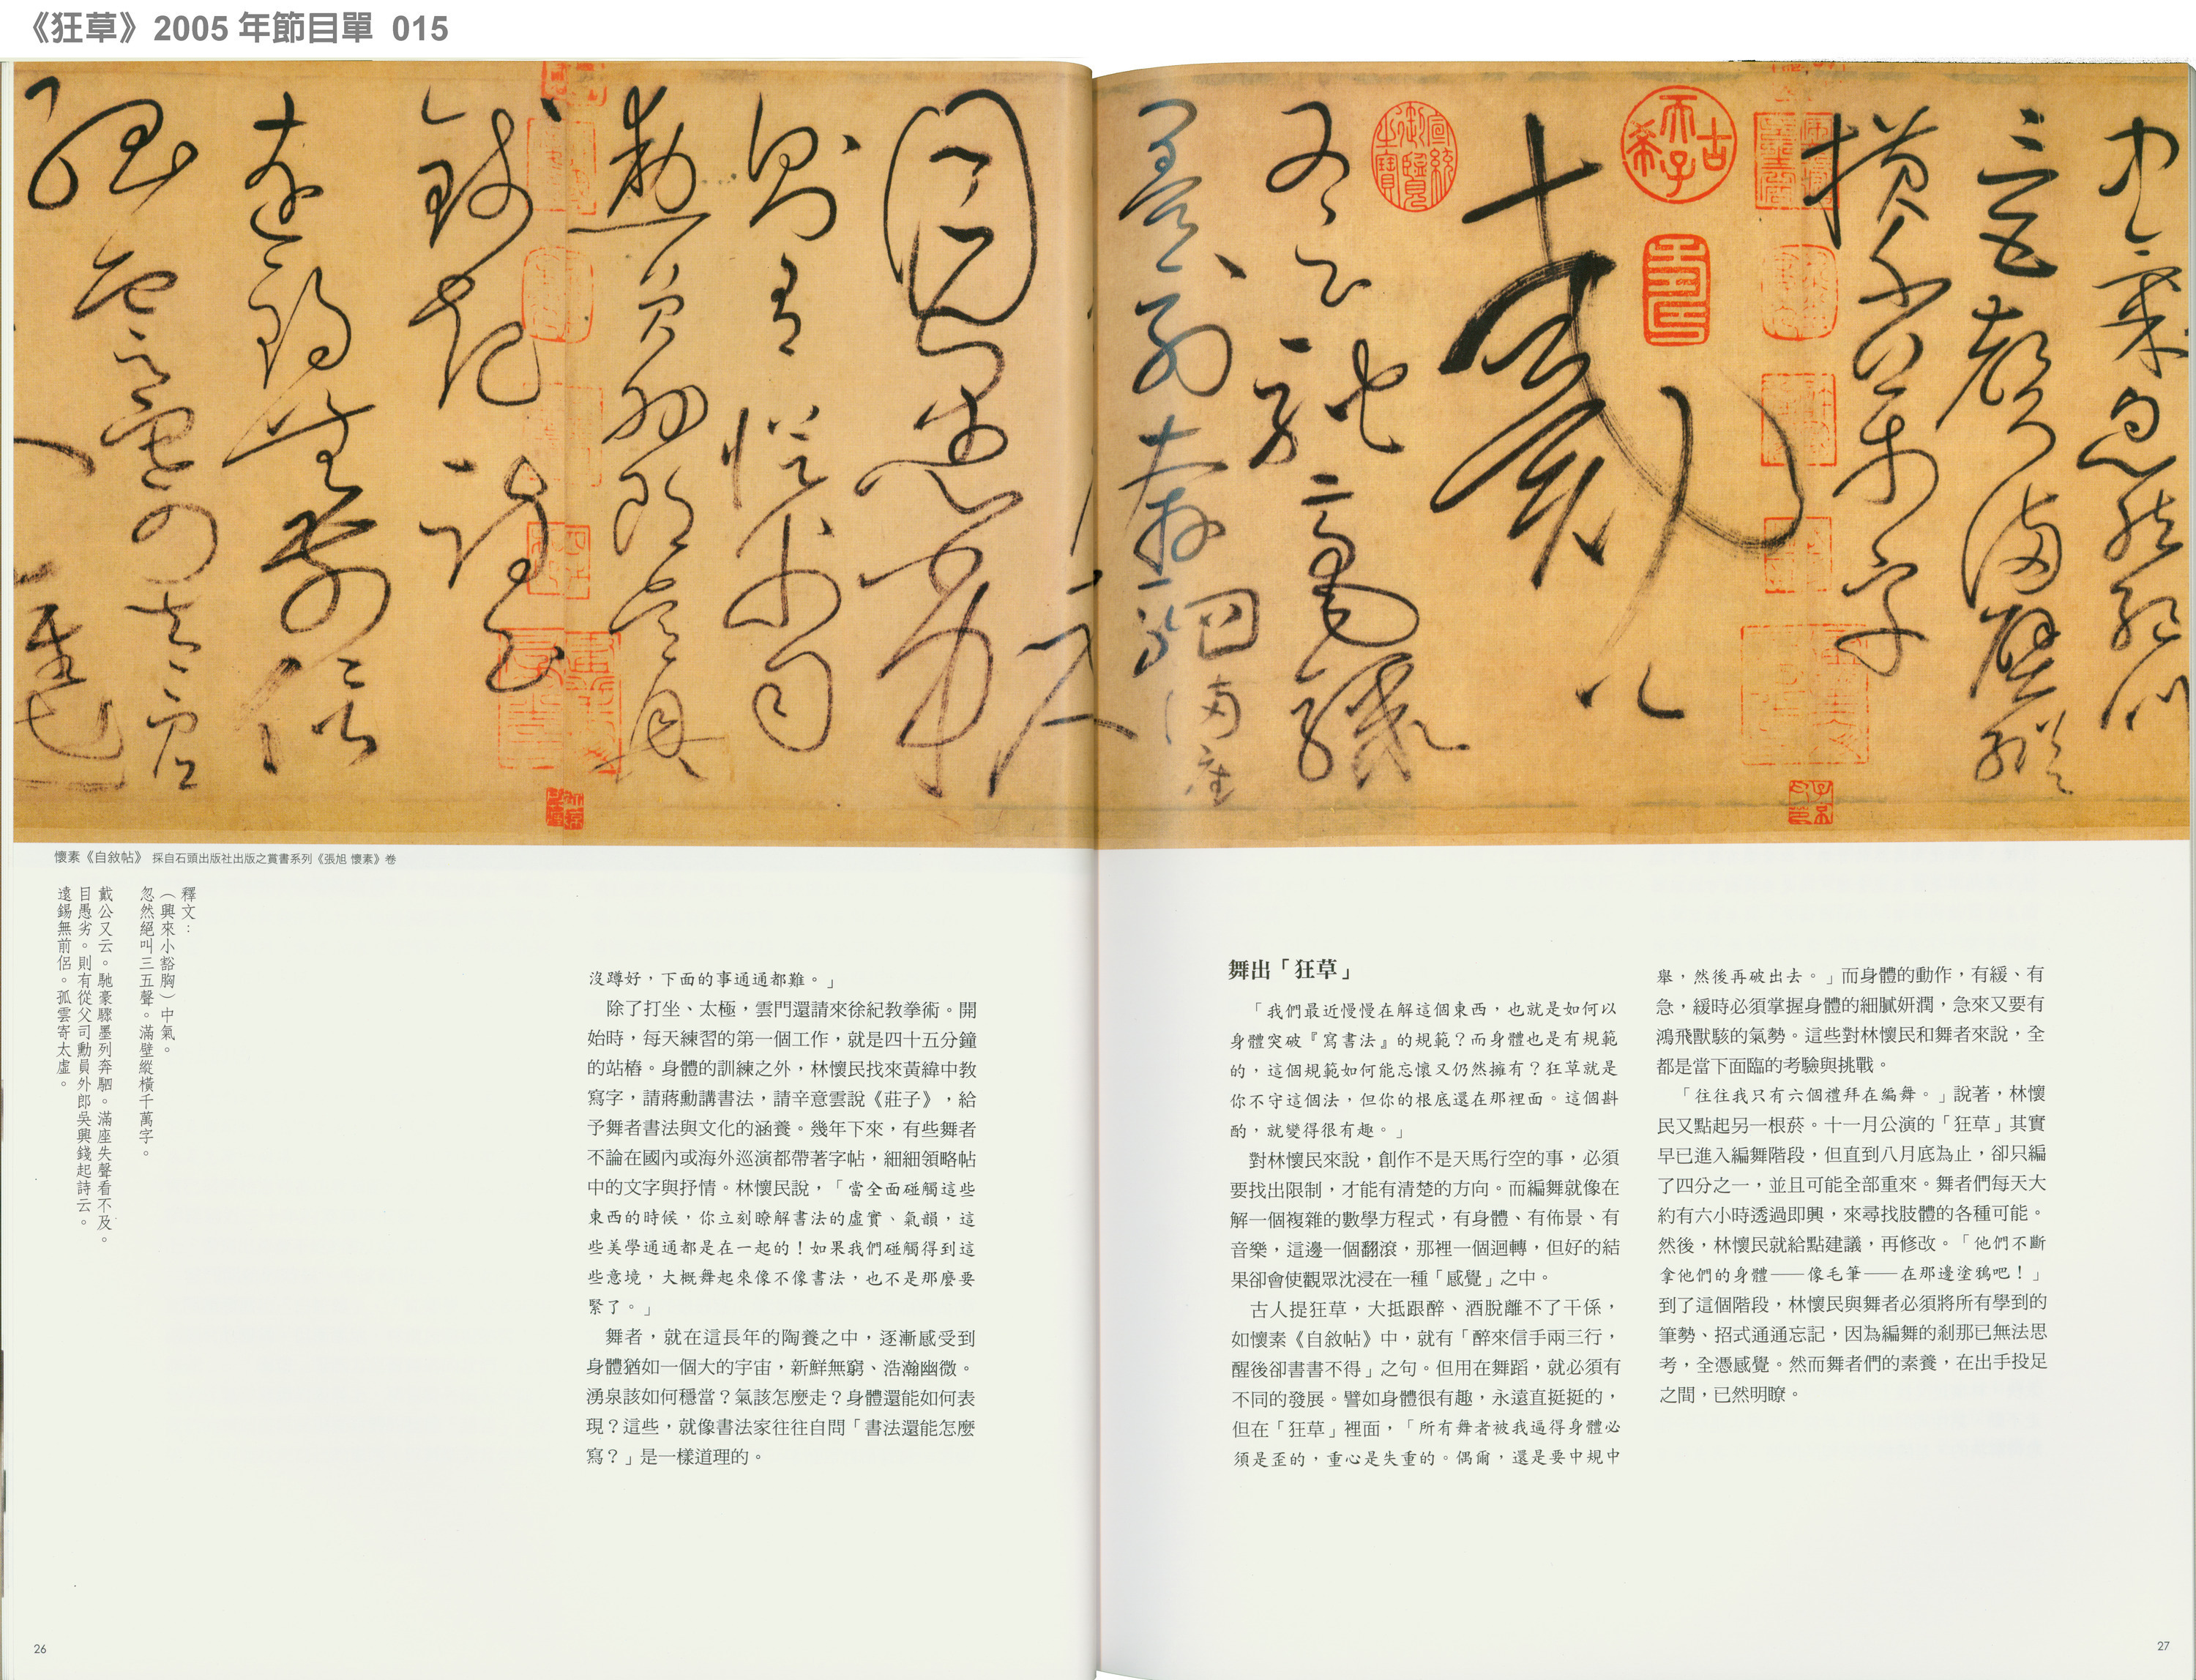 《狂草》2005 年節目單 015
中氣忽然絕叫
三五聲滿壁縱
橫千萬字
戴公
又云馳豪驟
墨列奔駟滿座
目愚劣
則有從父司
勳員外郎吳興
錢起詩云
遠錫無前侶
孤雲寄太虛
古希天子
宣統御覽之寶
懷素《自敘帖》 採自石頭出版社出版之賞書系列《張旭 懷素》卷
釋文：
（興來小豁胸）中氣。
忽然絕叫三五聲。滿壁縱橫千萬字。
戴公又云。馳豪驟墨列奔駟。滿座失聲看不及。
目愚劣。則有從父司勳員外郎吳興錢起詩云。
遠錫無前侶。孤雲寄太虛。
沒蹲好，下面的事通通都難。」
除了打坐、太極，雲門還請來徐紀教拳術。開
始時，每天練習的第一個工作，就是四十五分鐘
的站樁。身體的訓練之外，林懷民找來黃緯中教
寫字，請蔣勳講書法，請辛意雲說《莊子》，給
予舞者書法與文化的涵養。幾年下來，有些舞者
不論在國內或海外巡演都帶著字帖，細細領略帖
中的文字與抒情。林懷民說，「當全面碰觸這些
東西的時候，你立刻瞭解書法的虛實、氣韻，這
些美學通通都是在一起的！如果我們碰觸得到這
些意境，大概舞起來像不像書法，也不是那麼要
緊了。」
舞者，就在這長年的陶養之中，逐漸感受到
身體猶如一個大的宇宙，新鮮無窮、浩瀚幽微。
湧泉該如何穩當？氣該怎麼走？身體還能如何表
現？這些，就像書法家往往自問「書法還能怎麼
寫？」是一樣道理的。
26
舞出「狂草」
「我們最近慢慢在解這個東西，也就是如何以
身體突破『寫書法』的規範？而身體也是有規範
的，這個規範如何能忘懷又仍然擁有？狂草就是
你不守這個法，但你的根底還在那裡面。這個斟
酌，就變得很有趣。」
對林懷民來說，創作不是天馬行空的事，必須
要找出限制，才能有清楚的方向。而編舞就像在
解一個複雜的數學方程式，有身體、有佈景、有
音樂，這邊一個翻滾，那裡一個迴轉，但好的結
果卻會使觀眾沈浸在一種「感覺」之中。
古人提狂草，大抵跟醉、酒脫離不了干係，
如懷素《自敘帖》中，就有「醉來信手兩三行，
醒後卻書書不得」之句。但用在舞蹈，就必須有
不同的發展。譬如身體很有趣，永遠直挺挺的，
但在「狂草」裡面，「所有舞者被我逼得身體必
須是歪的，重心是失重的。偶爾，還是要中規中
舉，然後再破出去。」而身體的動作，有緩、有
急，緩時必須掌握身體的細膩妍潤，急來又要有
鴻飛獸駭的氣勢。這些對林懷民和舞者來說，全
都是當下面臨的考驗與挑戰。
「往往我只有六個禮拜在編舞。」說著，林懷
民又點起另一根菸。十一月公演的「狂草」其實
早已進入編舞階段，但直到八月底為止，卻只編
了四分之一，並且可能全部重來。舞者們每天大
約有六小時透過即興，來尋找肢體的各種可能。
然後，林懷民就給點建議，再修改。「他們不斷
拿他們的身體——像毛筆——在那邊塗鴉吧！」
到了這個階段，林懷民與舞者必須將所有學到的
筆勢、招式通通忘記，因為編舞的剎那已無法思
考，全憑感覺。然而舞者們的素養，在出手投足
之間，已然明瞭。
27